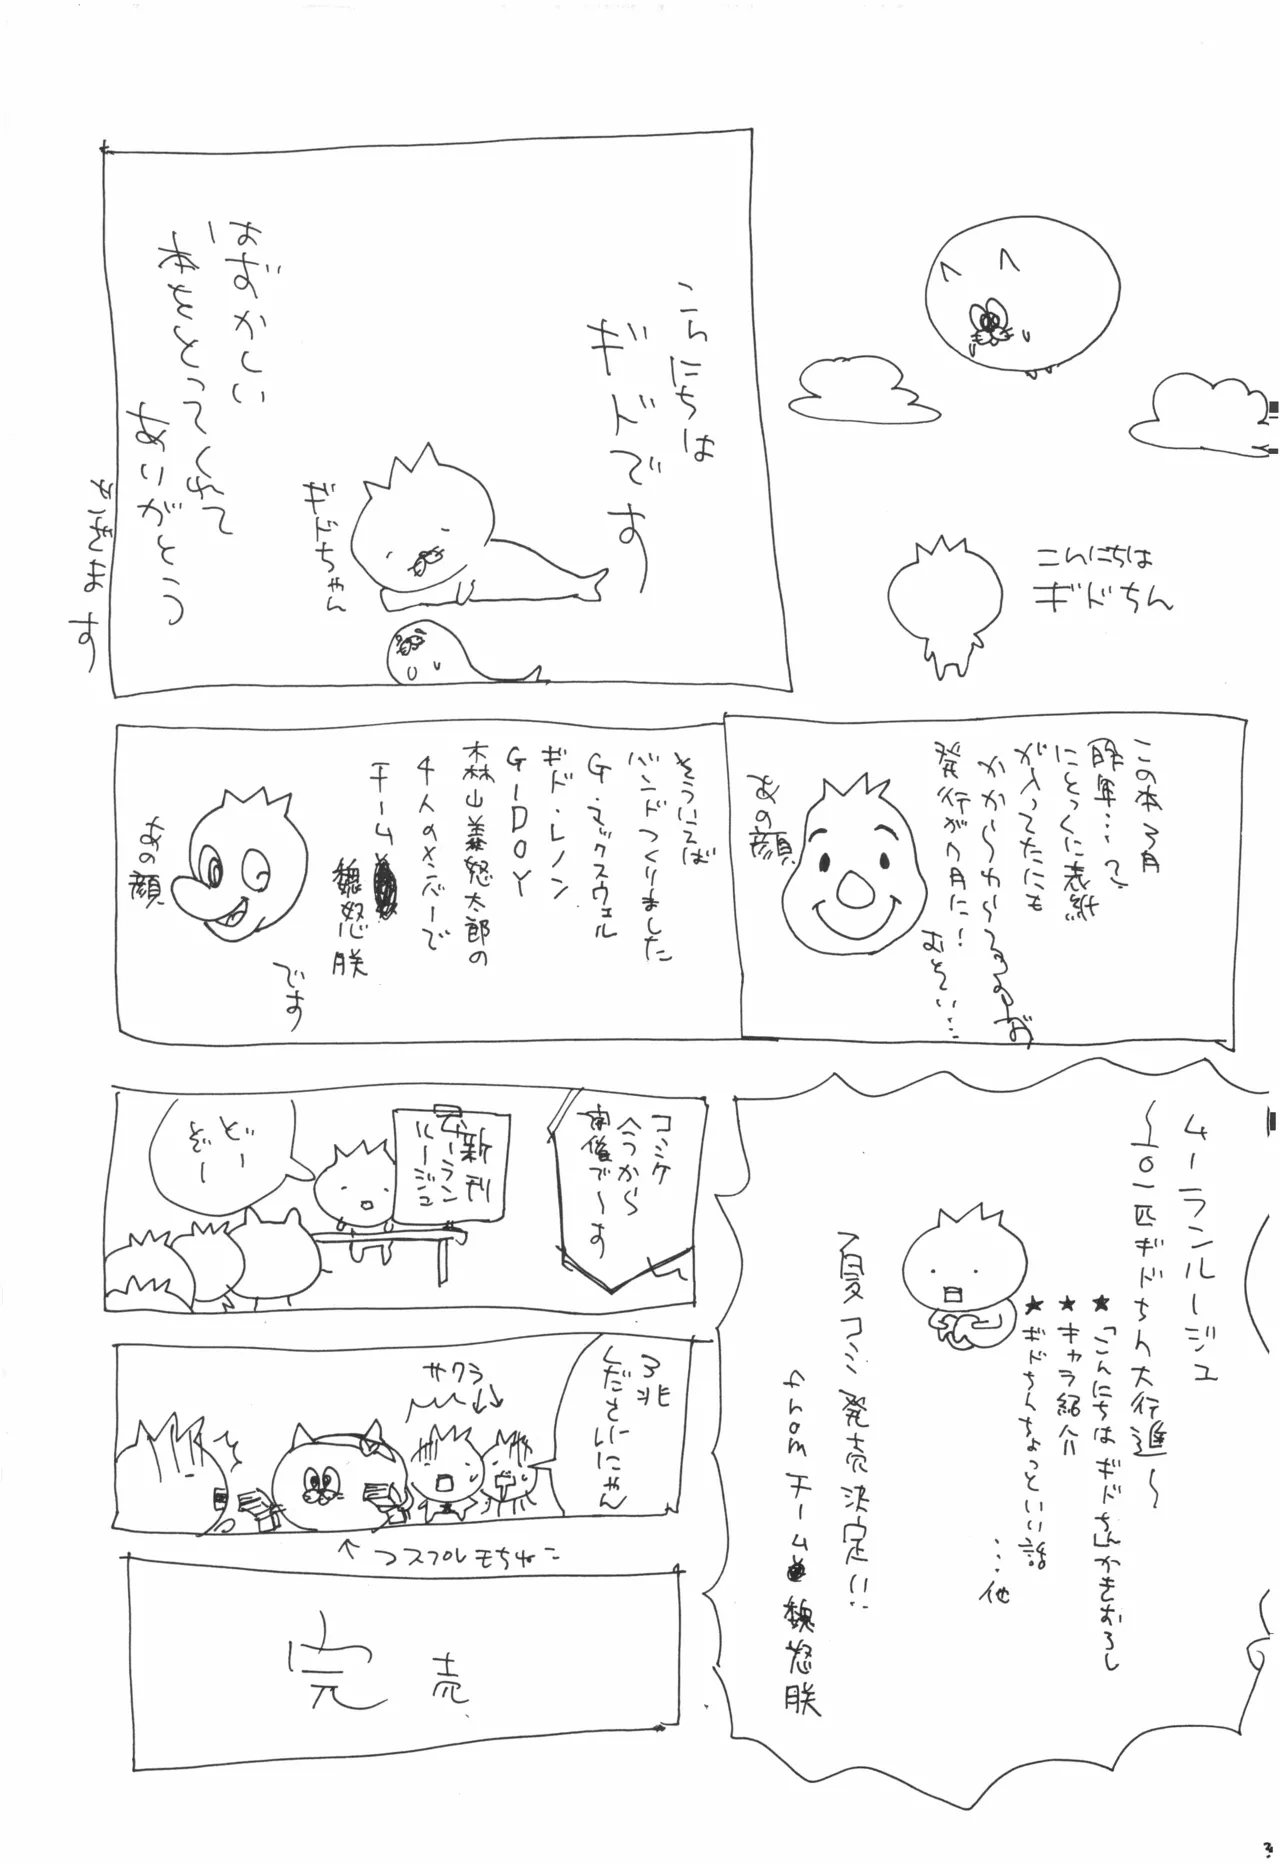 こんにちは
ギドちん
こんにちは
ギドです
ギドちゃん
はずかしい
本をとってくれて
ありがとう
ございます
この本3月
昨年…って
にとっくに表紙
が入ってたにも
かかーらわーらるるのず
発行が7月に!
むごい…
あの顔
そういえば
バンドつくりました
G・マックスウェル
ギド・レノン
G-IDOY
森山義怒太郎の
4人のメンバーで
チーム
魏怒朕
です
あの顔
ムーランルージュ
〜101匹ギドちん大行進〜
★「こんにちはギドちん」かきおろし
★キャラ紹介
★ギドちんちょっといい話
…他
夏コミ発売決定!!
from チーム魏怒朕
コミケ
今から
開催で〜す
新刊
ムーラン
ルージュ
どー
ぞー
3兆
くださいにゃん
サクラ
↑コスプレもちねこ
完売